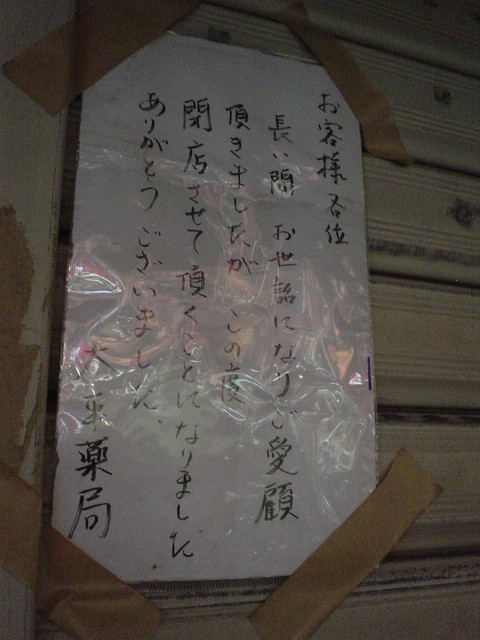 お客様各位
長い間 お世話になりご愛顧
頂きましたが この度
閉店させて頂くことになりました
ありがとうございました、
大 薬局